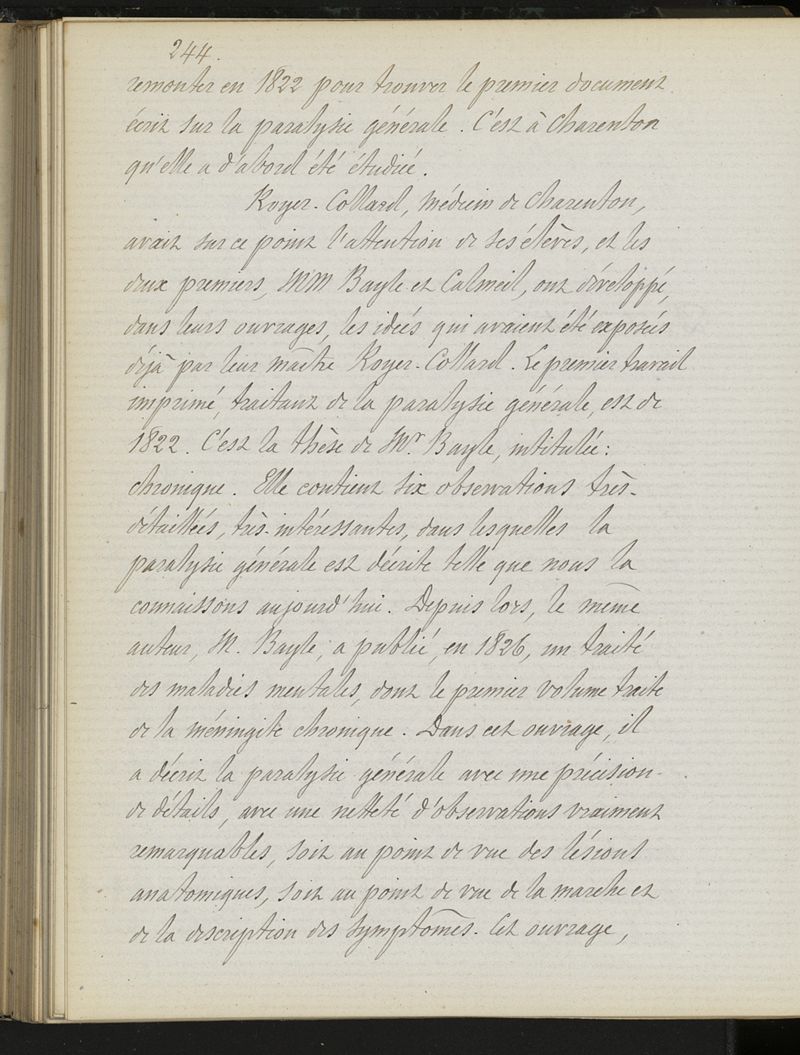 244.
remonter en 1822 pour trouver le premier document
écrit sur la paralysie générale. C'est à Charenton
qu'elle a d'abord été étudiée.
Royer-Collard, Médecin de Charenton,
avait sur ce point l'attention de ses élèves, et les
deux premiers, MM Bayle et Calmeil, ont développé,
dans leurs ouvrages, les idées qui avaient été exposées
déjà par leur maître Royer-Collard. Le premier travail
imprimé, traitant de la paralysie générale, est de
1822. C'est la thèse de Mr. Bayle, intitulée:
chronique. Elle contient six observations très-
détaillées, très-intéressantes, dans lesquelles la
paralysie générale est décrite telle que nous la
connaissons aujourd'hui. Depuis lors, le même
auteur, M. Bayle, a publié, en 1826, un traité
des maladies mentales, dont le premier volume traite
de la méningite chronique. Dans cet ouvrage, il
a décrit la paralysie générale avec une précision
de détails, avec une netteté d'observations vraiment
remarquables, soit au point de vue des lésions
anatomiques, soit au point de vue de la marche et
de la description des symptômes. Cet ouvrage,